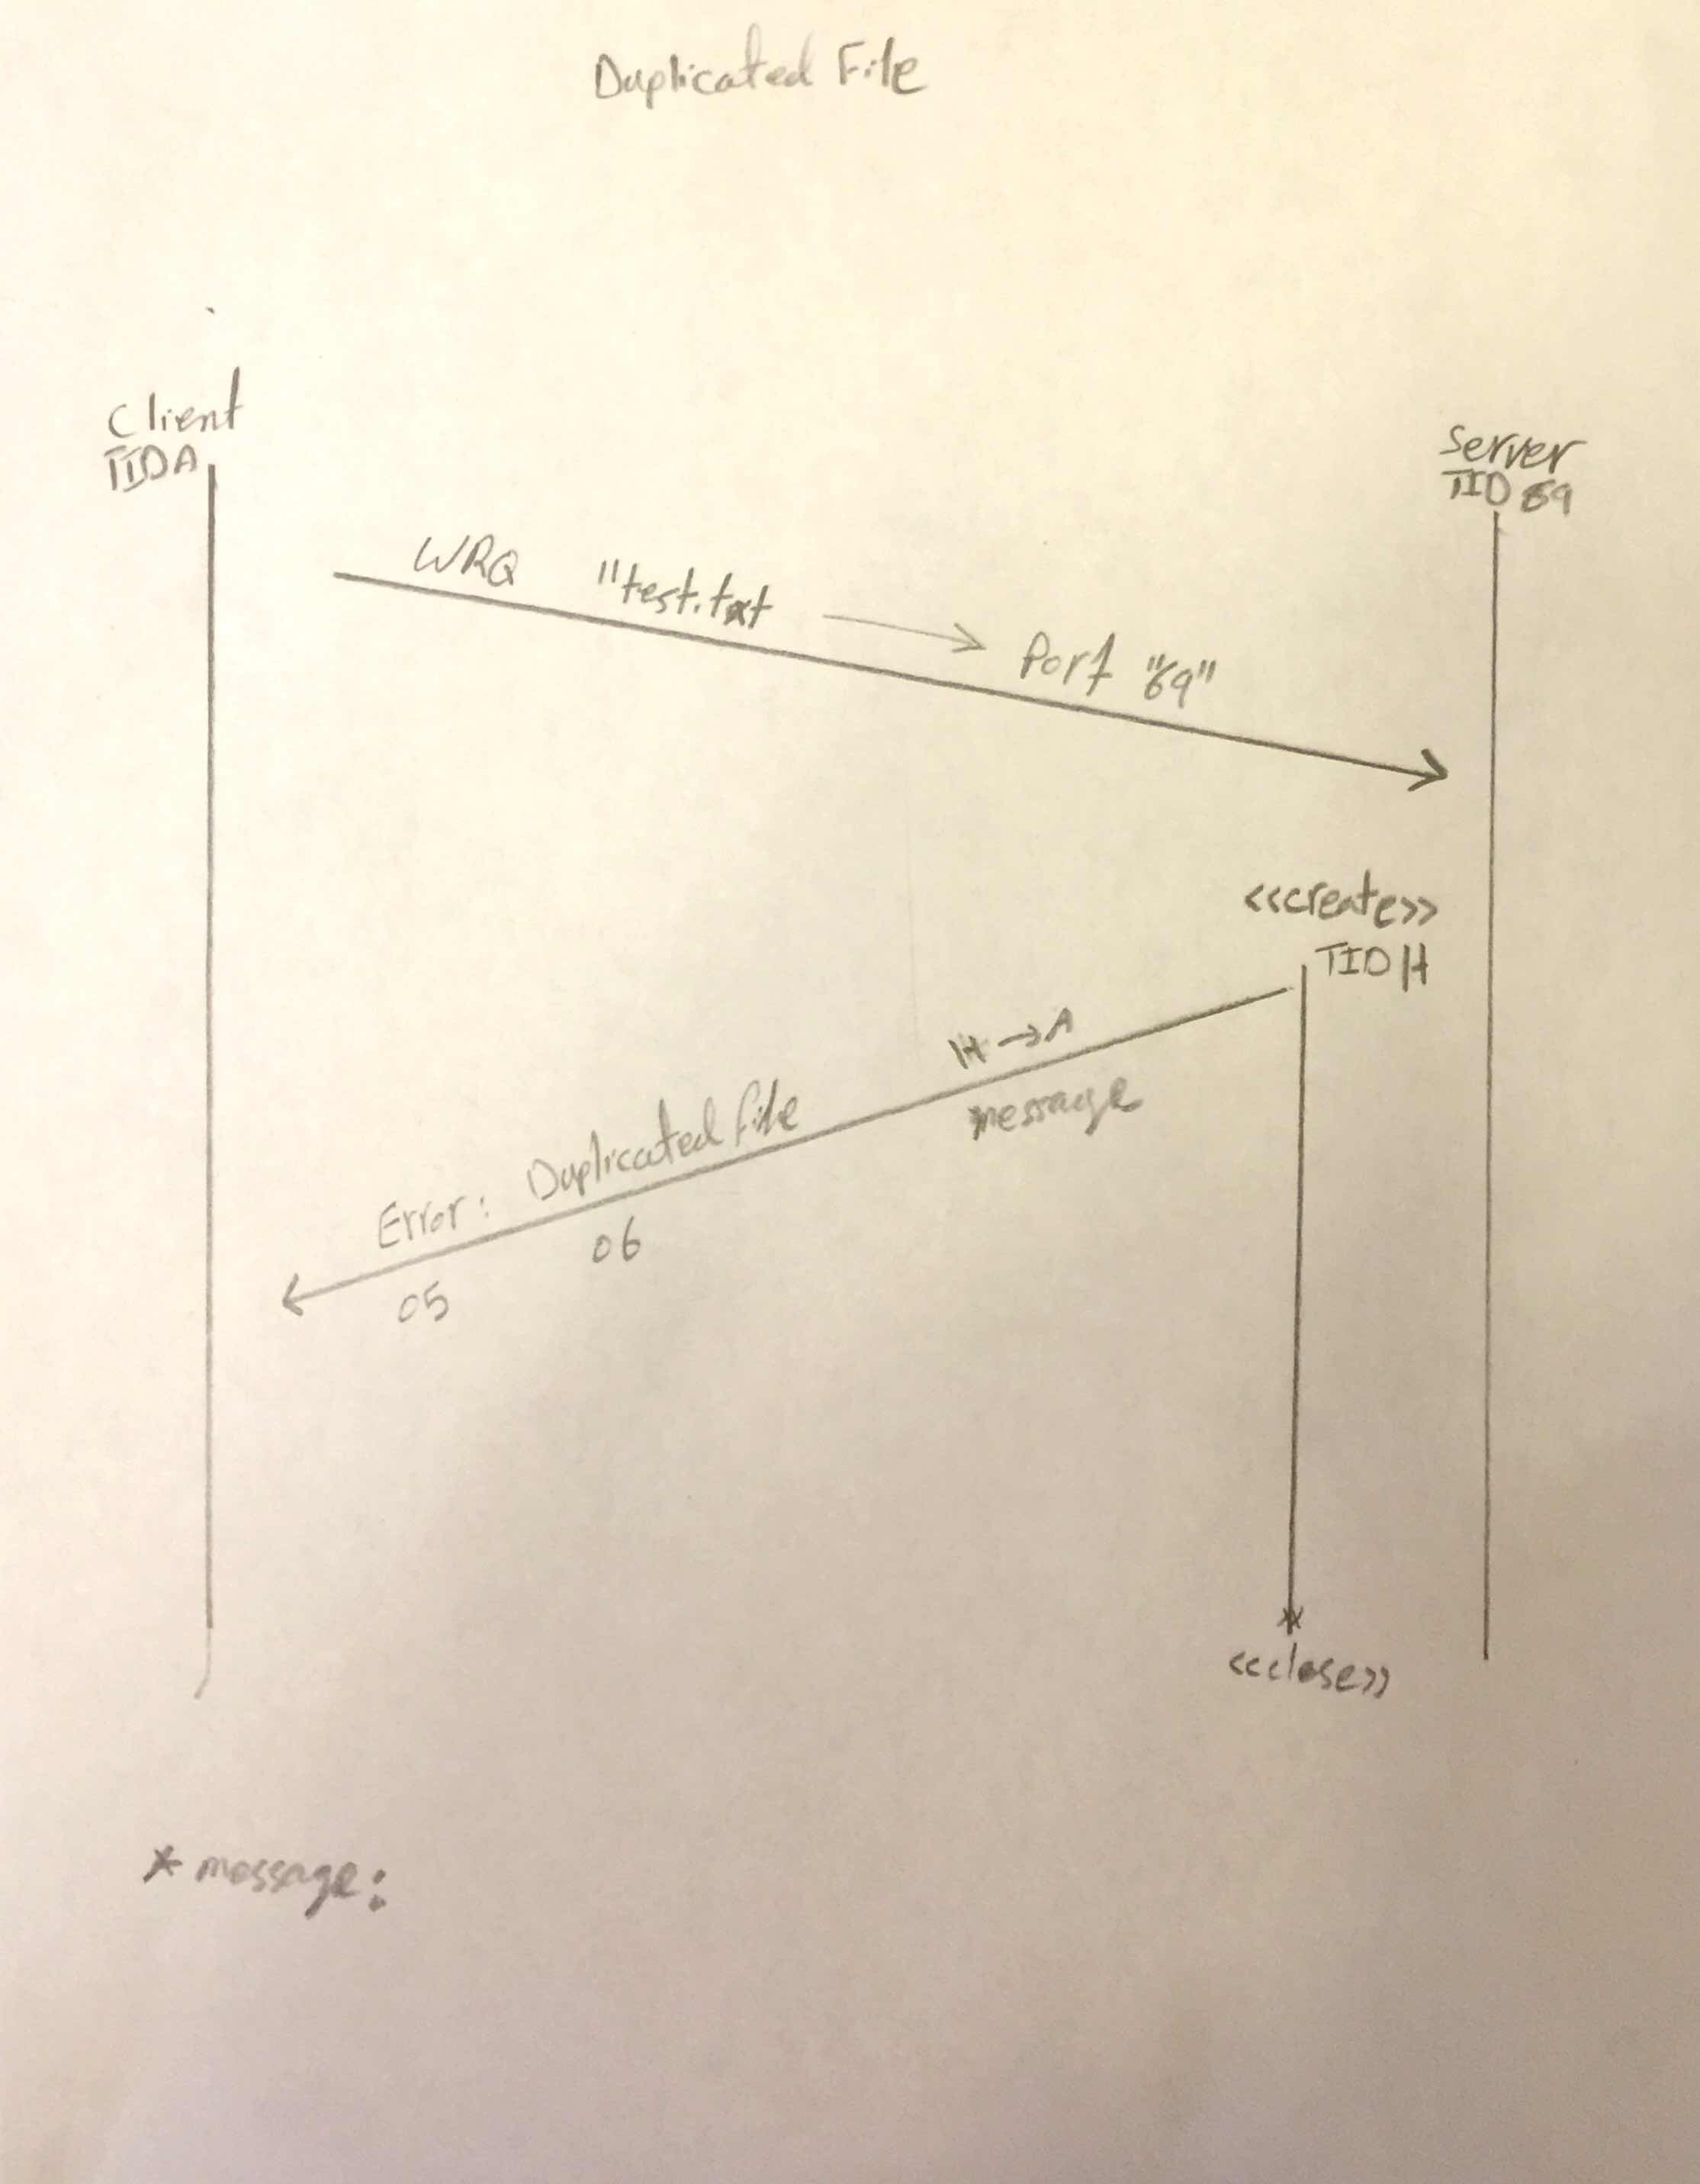 Duplicated File
Client
TIDA
Server
TID 69
WRQ "test.txt → Port "69"
<<create>>
TID H
H → A
message
Error: Duplicated file
06
05
*
<<close>>
* message: